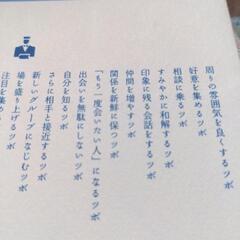 周りの雰囲気を良くするツボ
好意を集めるツボ
相談に乗るツボ
すみやかに和解するツボ
印象に残る会話をするツボ
仲間を増やすツボ
関係を新鮮に保つツボ
「もう一度会いたい人」になるツボ
出会いを無駄にしないツボ
自分を知るツボ
さらに相手と接近するツボ
新しいグループになじむツボ
場を盛り上げるツボ
注目を集め